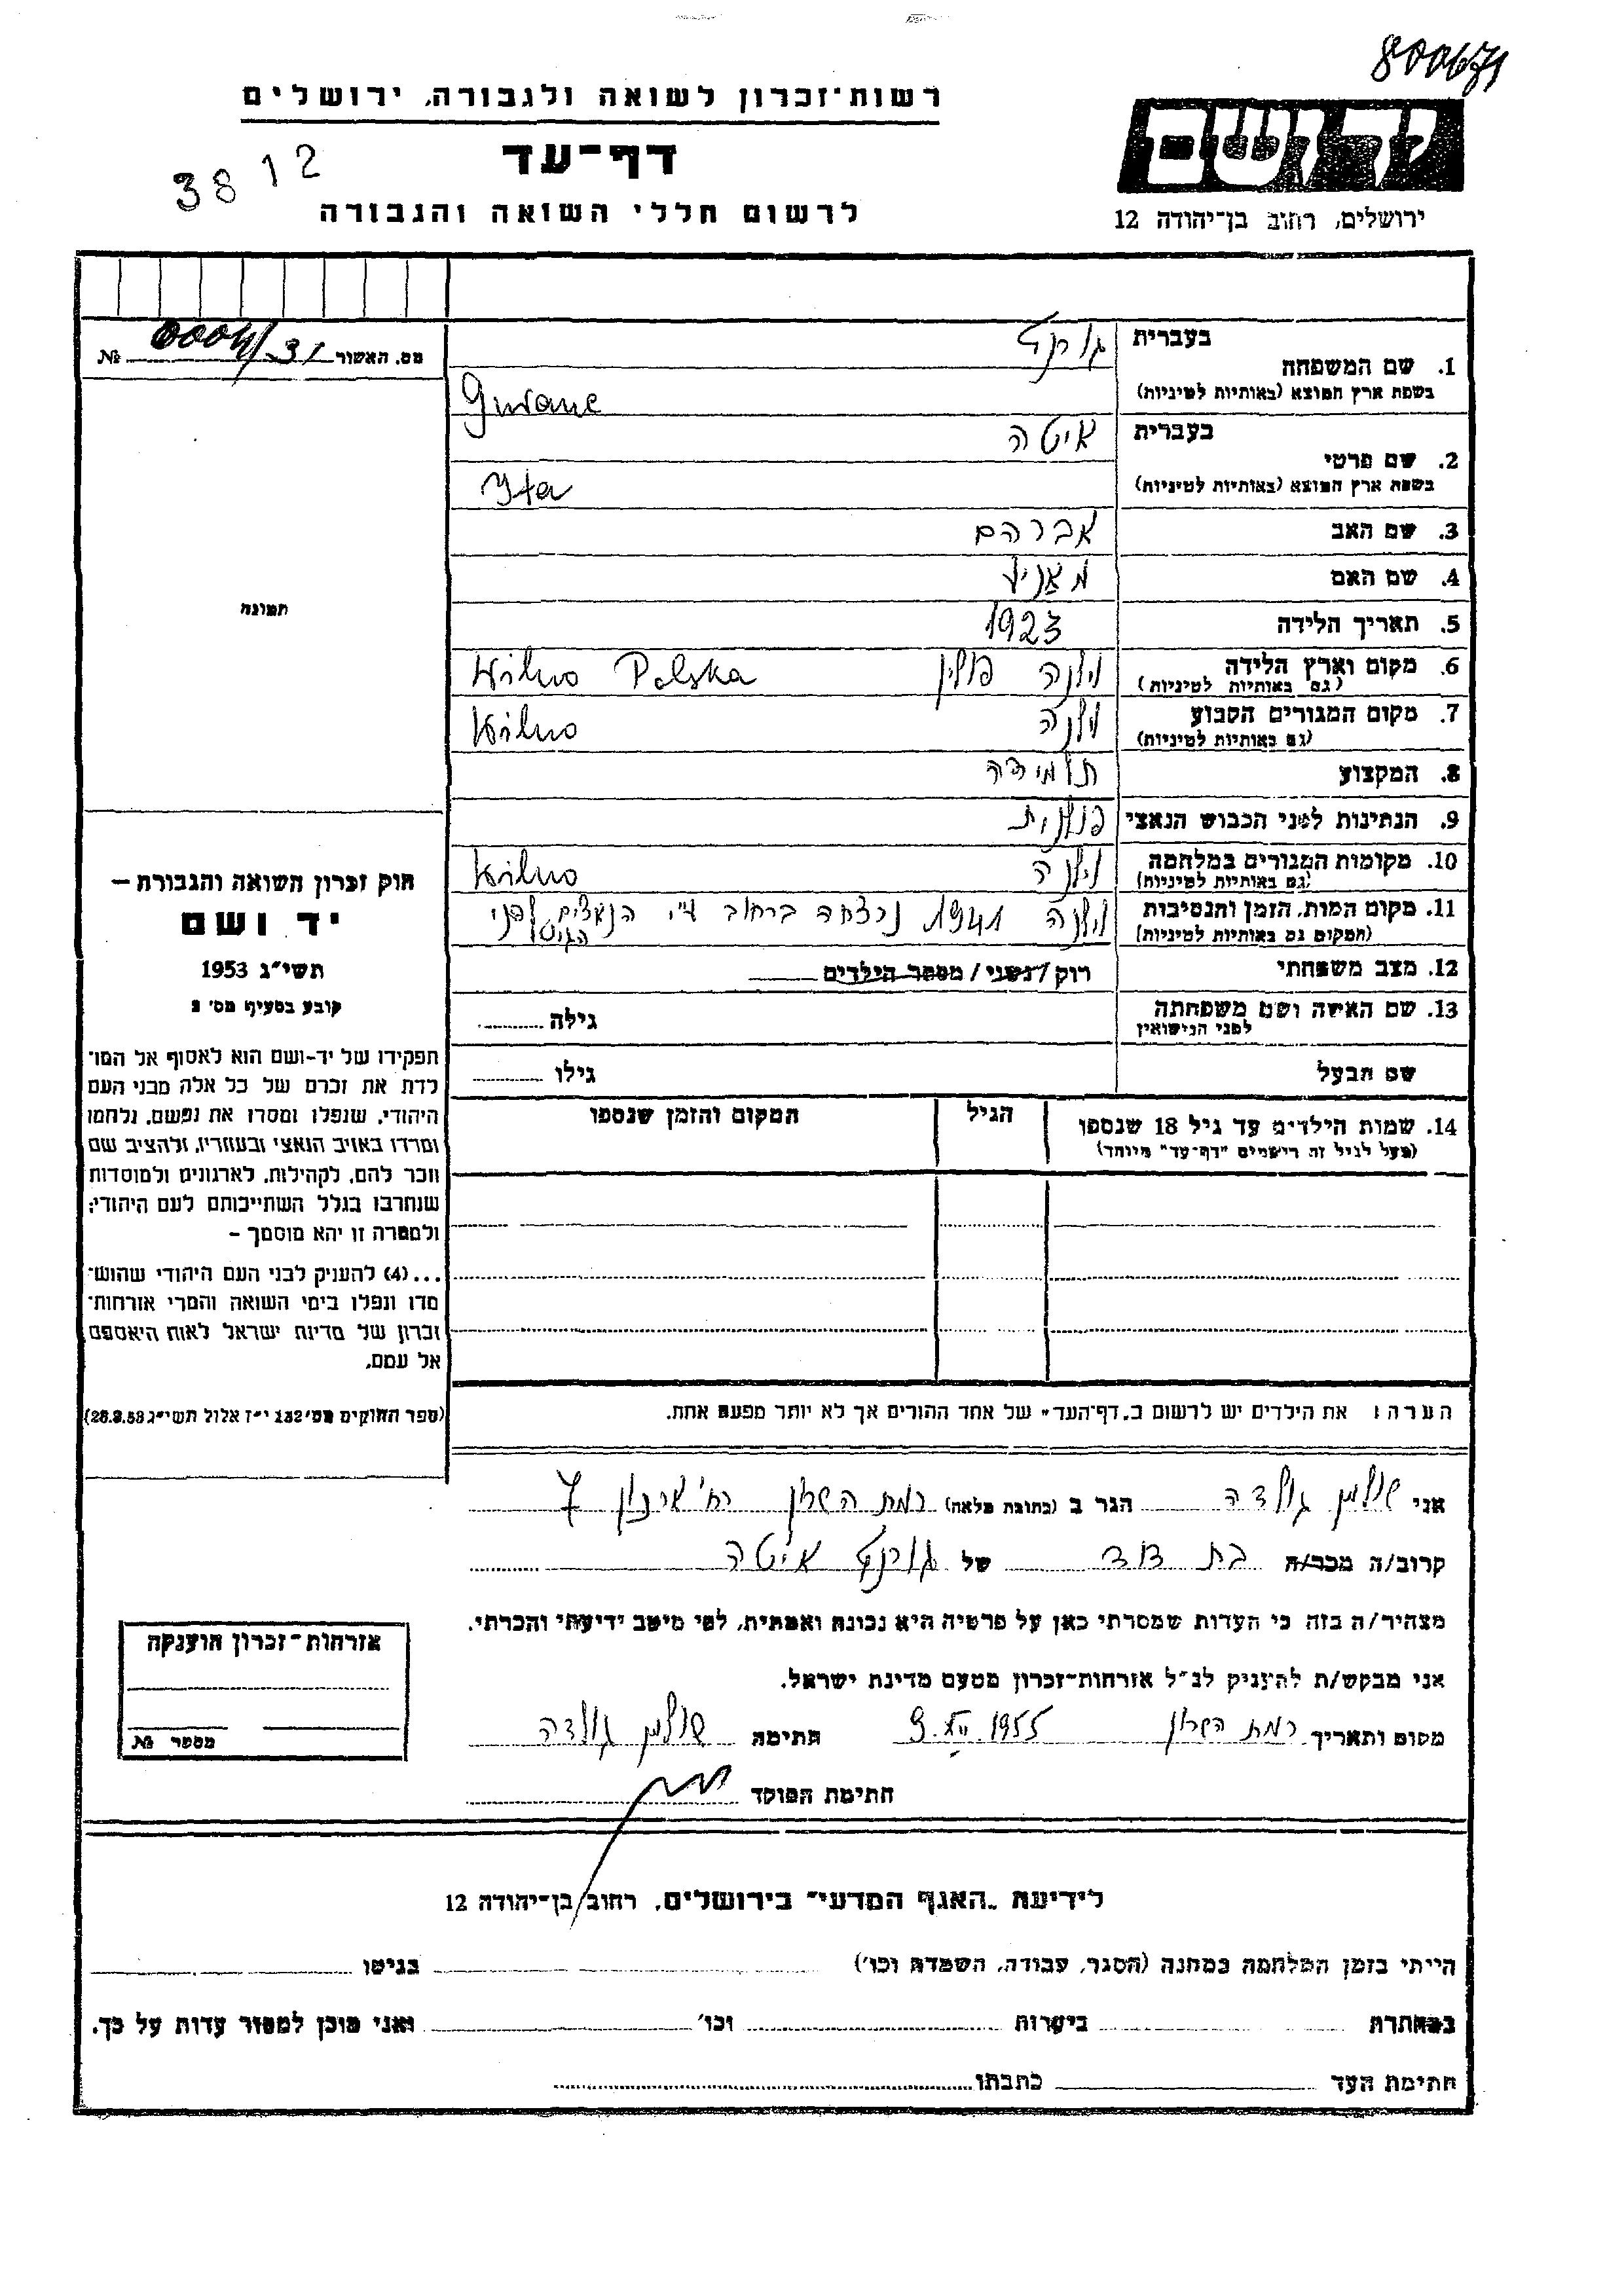 800671
רשות־זכרון לשואה ולגבורה, ירושלים
דף־עד
3812
לרשום חללי השואה והגבורה
ידושם
ירושלים, רחוב בן־יהודה 12
מס. האשור 31 / №
בעברית
1. שם המשפחה
בשפת ארץ המוצא (באותיות לטיניות)
2. שם פרטי
בעברית איטה
בשפת ארץ המוצא (באותיות לטיניות) Yta
3. שם האב אברהם
4. שם האם
5. תאריך הלידה 1923
6. מקום וארץ הלידה וילנה פולין Wilno Polska
(גם באותיות לטיניות)
7. מקום המגורים הקבוע וילנה Wilno
(גם באותיות לטיניות)
8. המקצוע תלמידה
9. הנתינות לפני הכבוש הנאצי פולנית
10. מקומות המגורים במלחמה וילנה Wilno
(גם באותיות לטיניות)
11. מקום המות, הזמן והנסיבות וילנה 1941 נרצחה ברחוב ע"י הנאצים לפני הגיטו
(המקום גם באותיות לטיניות)
12. מצב משפחתי רוק / נשוי / מספר הילדים
13. שם האשה ושם משפחתה גילה
לפני הנישואין
שם הבעל גילו
14. שמות הילדים עד גיל 18 שנספו הגיל המקום והזמן שנספו
(מעל לגיל זה רישמים "דף־עד" מיוחד)
הערה: את הילדים יש לרשום ב„דף־העד" של אחד ההורים אך לא יותר מפעם אחת.
תמונה
חוק זכרון השואה והגבורה —
יד ושם
תשי"ג 1953
קובע בסעיף מס' 2
תפקידו של יד-ושם הוא לאסוף אל המו־
לדת את זכרם של כל אלה מבני העם
היהודי, שנפלו ומסרו את נפשם, נלחמו
ומרדו באויב הנאצי ובעוזריו, ולהציב שם
וזכר להם, לקהילות, לארגונים ולמוסדות
שנחרבו בגלל השתייכותם לעם היהודי;
ולמטרה זו יהא מוסמך –
...(4) להעניק לבני העם היהודי שהוש־
מדו ונפלו בימי השואה והמרי אזרחות־
זכרון של מדינת ישראל לאות היאספם
אל עמם.
(ספר החוקים מס' 132 י"ז אלול תשי"ג 28.8.53)
אני שולמן גולדה הגר ב (כתובת מלאה) רמת השרון רח' ארנון 7
קרוב/ה מכר/ה בת דוד של איטה
מצהיר/ה בזה כי העדות שמסרתי כאן על פרטיה היא נכונה ואמתית, לפי מיטב ידיעתי והכרתי.
אני מבקש/ת להעניק לנ"ל אזרחות־זכרון מטעם מדינת ישראל.
מקום ותאריך רמת השרון 1955 חתימה שולמן גולדה
חתימת הפוקד
אזרחות־זכרון הוענקה
מספר №
לידיעת „האגף המדעי" בירושלים, רחוב בן־יהודה 12
הייתי בזמן המלחמה במחנה (הסגר, עבודה, השמדה וכו') בגיטו
במחתרת ביערות וכו' ואני מוכן למסור עדות על כך.
חתימת העד כתבתו